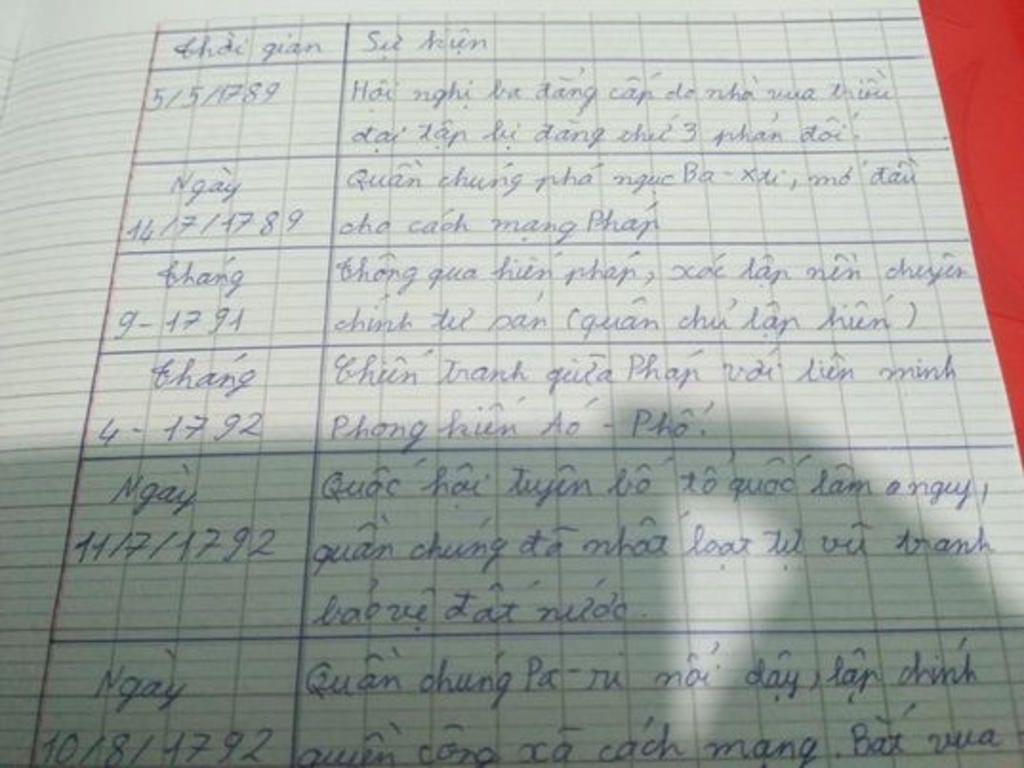 Thời gian Sự kiện
5/5/1789 Hội nghị ba đẳng cấp do nhà vua triều
đại tập bị đẳng thứ 3 phản đối.
Ngày Quần chúng phá ngục Ba-xti, mở đầu
14/7/1789 cho cách mạng Pháp
Tháng Thông qua hiến pháp, xác lập nền chuyên
9-1791 chính tư sản (quân chủ lập hiến)
Tháng Chiến tranh giữa Pháp với liên minh
4-1792 Phong kiến Áo - Phổ.
Ngày Quốc hội tuyên bố tổ quốc lâm nguy,
11/7/1792 quần chúng đã nhất loạt tự vũ tranh
bảo vệ đất nước.
Ngày Quần chúng Pa-ri nổi dậy, lập chính
10/8/1792 quyền công xã cách mạng. Bắt vua